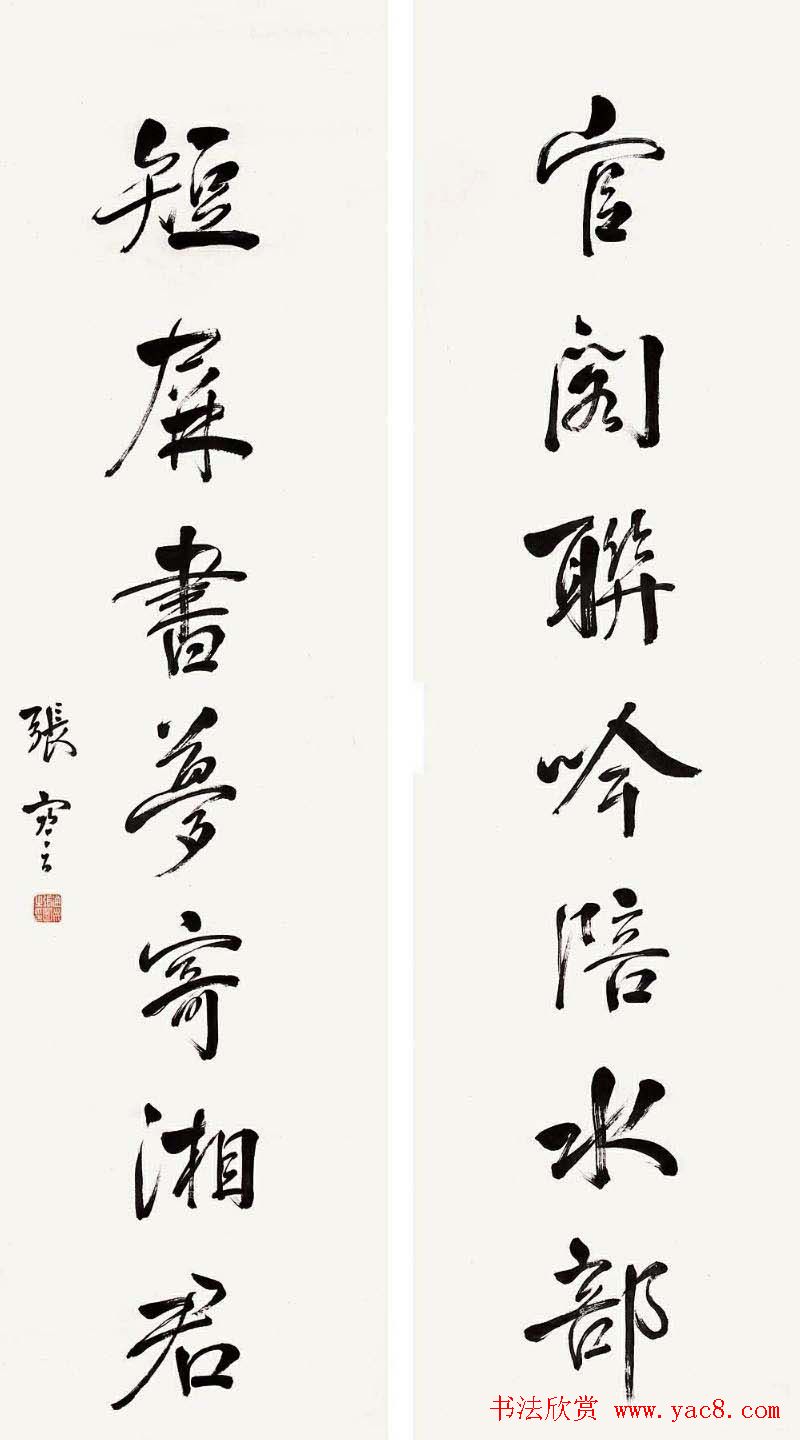 官閣聯吟陪水部
短屏書夢寄湘君
張謇
书法欣赏 www.yac8.com